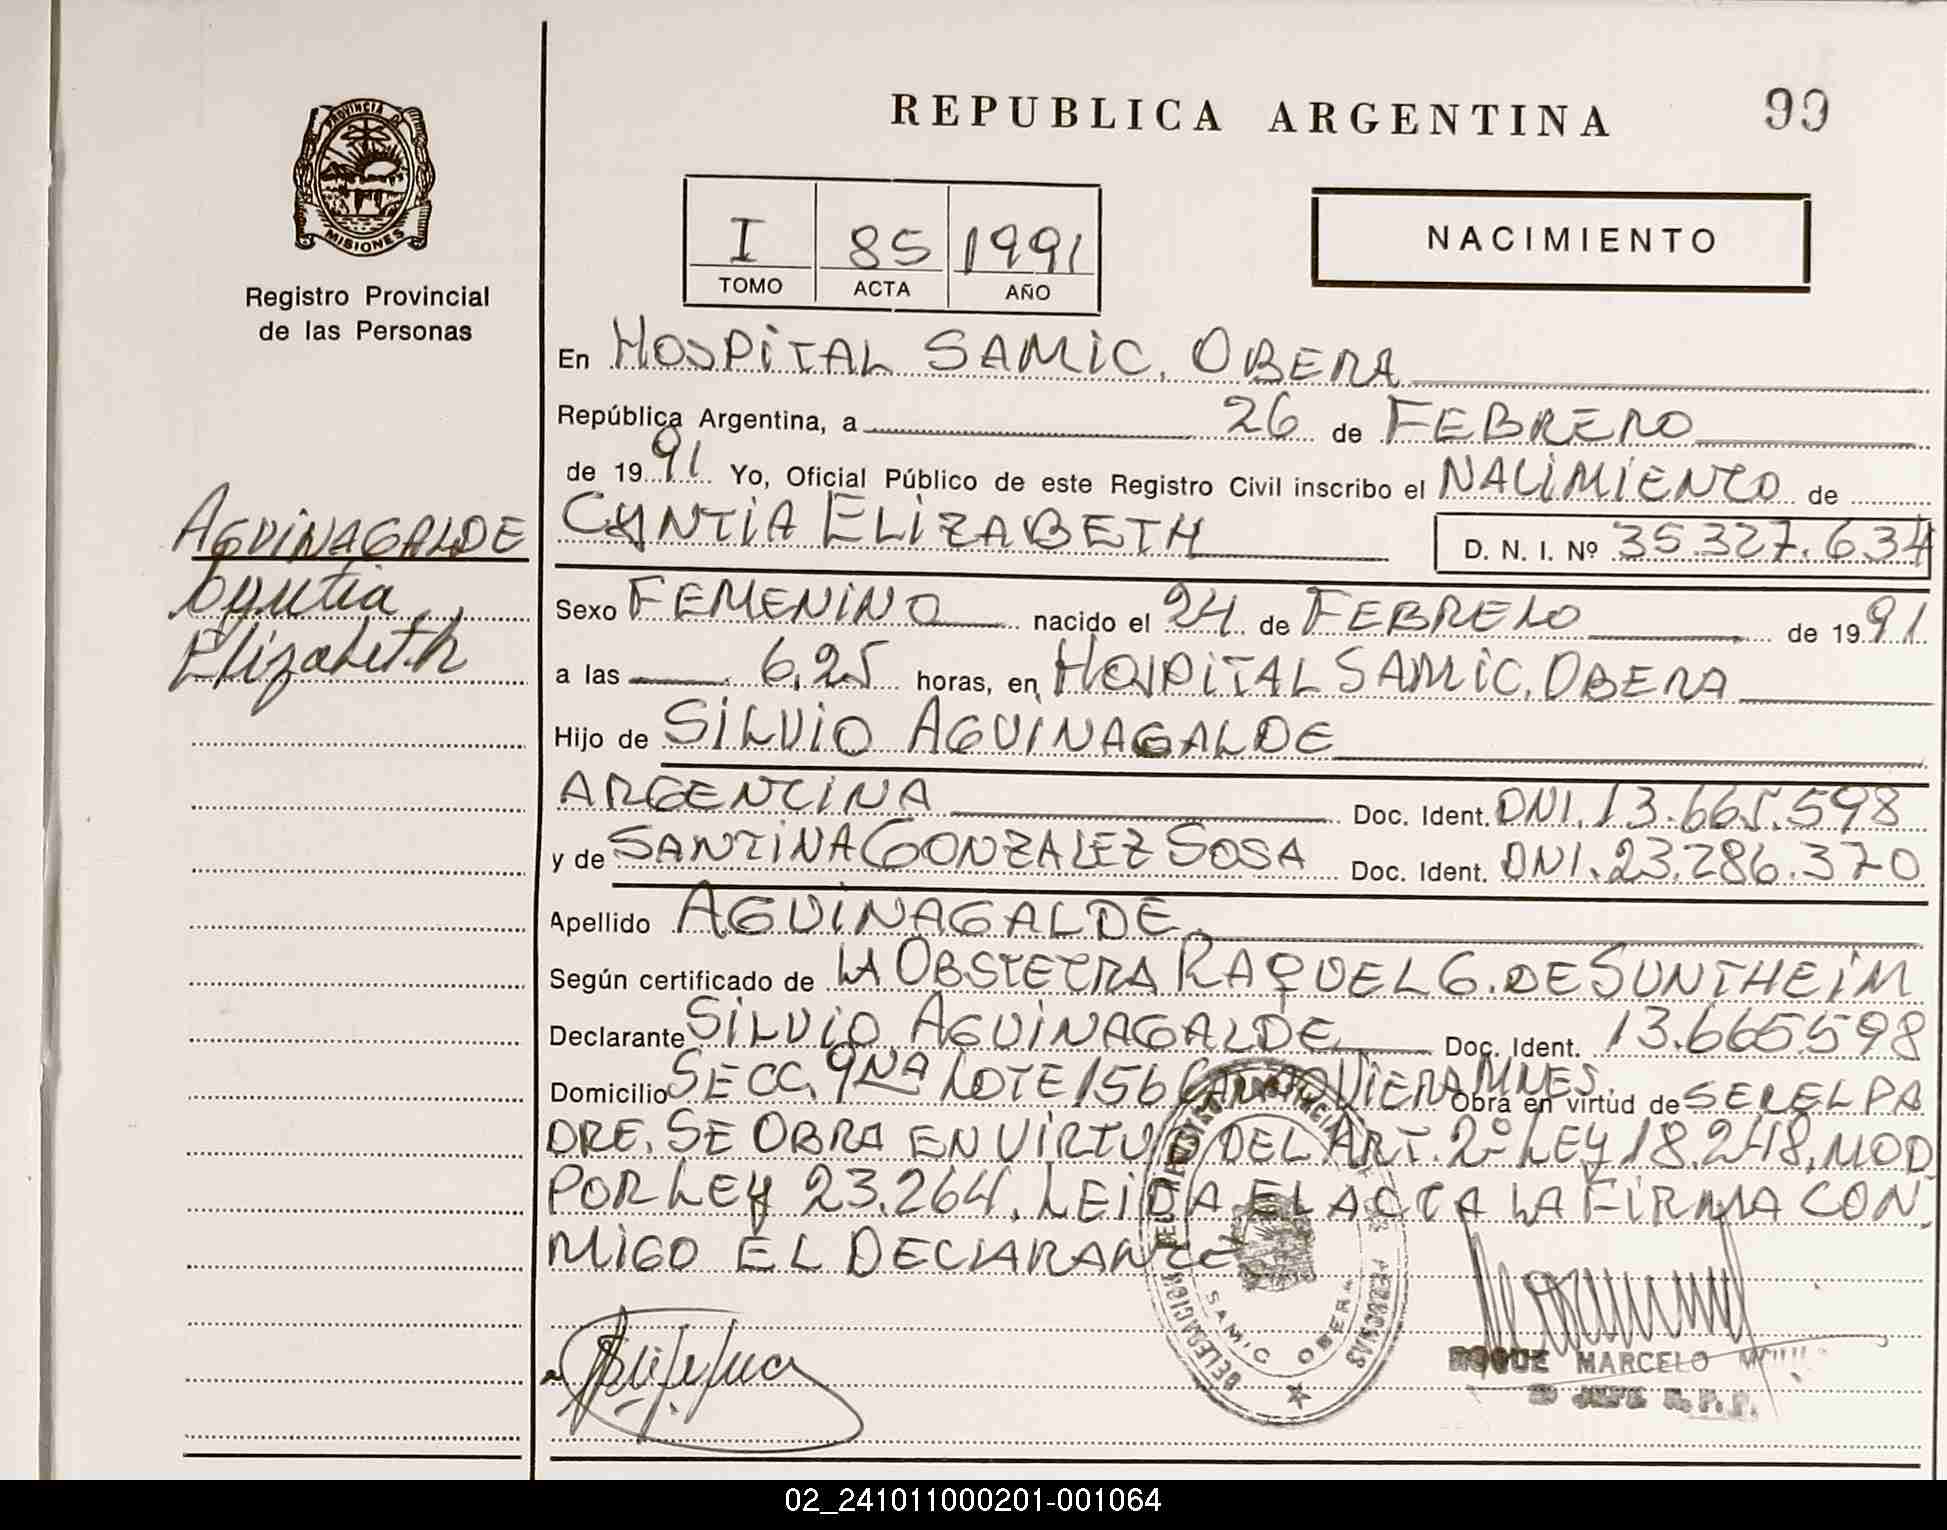 REPUBLICA ARGENTINA
99
PROVINCIA DE
MISIONES
Registro Provincial
de las Personas
I 85 1991
TOMO ACTA AÑO
NACIMIENTO
En HOSPITAL SAMIC. OBERA
República Argentina, a 26 de FEBRERO
de 1991 Yo, Oficial Público de este Registro Civil inscribo el NACIMIENTO de
AGUINAGALDE
Cyntia
Elizabeth
CYNTIA ELIZABETH D. N. I. Nº 35.327.634
Sexo FEMENINO nacido el 24 de FEBRERO de 1991
a las 6,25 horas, en HOSPITAL SAMIC. OBERA
Hijo de SILVIO AGUINAGALDE
ARGENTINA Doc. Ident. DNI. 13.665.598
y de SANTINA GONZALEZ SOSA Doc. Ident. DNI. 23.286.370
Apellido AGUINAGALDE.
Según certificado de LA OBSTETRA RAQUEL G. DE SUNTHEIM
Declarante SILVIO AGUINAGALDE Doc. Ident. 13.665.598
Domicilio SECC. 9NA LOTE 156 VIERA MNES. Obra en virtud de SER EL PA
DRE. SE OBRA EN VIRTUD DEL ART. 2º LEY 18.248, MOD
POR LEY 23.264. LEIDA EL ACTA LA FIRMA CON
MIGO EL DECLARANTE
DELEGACION PERSONAS
SAMIC OBERA
ROQUE MARCELO
JEFE R. P. P.
02_241011000201-001064